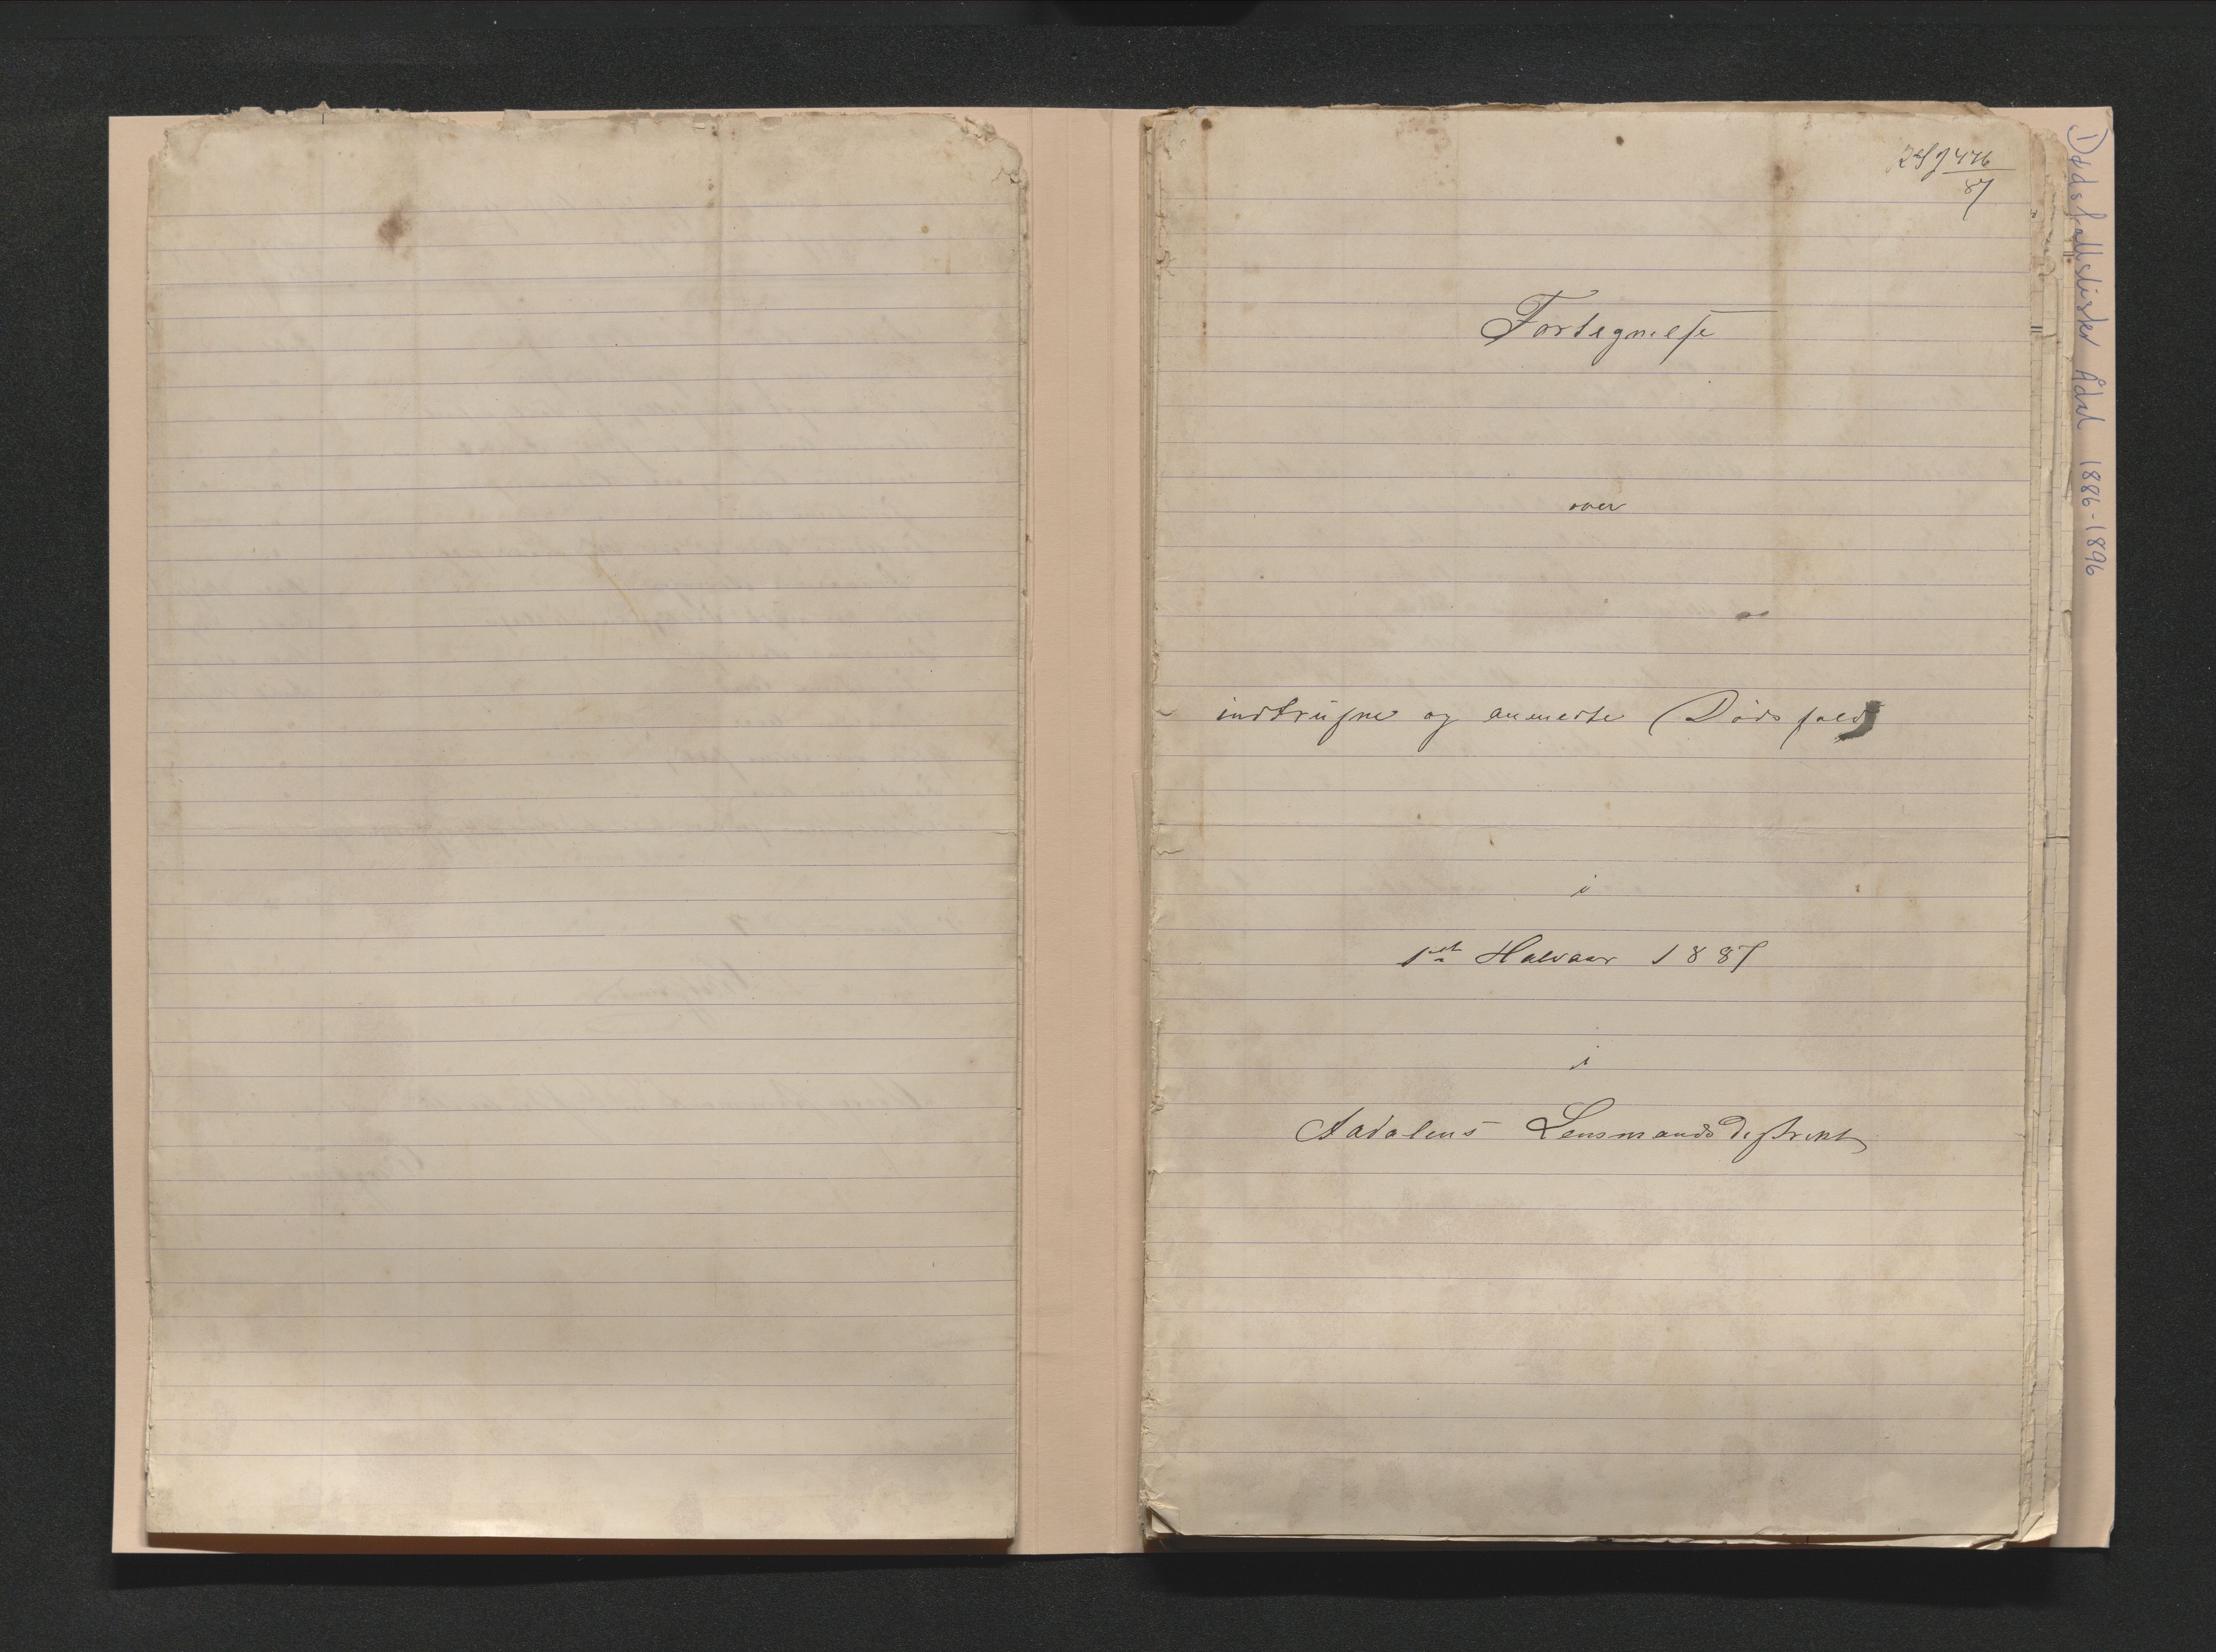 476
87
Fortegnelse
over
indtrufne og anmeldte Dødsfald
i
1ste Halvaar 1887
i
Aadalens Lensmandsdistrikt
Dødsfallslister Ådal 1886-1896